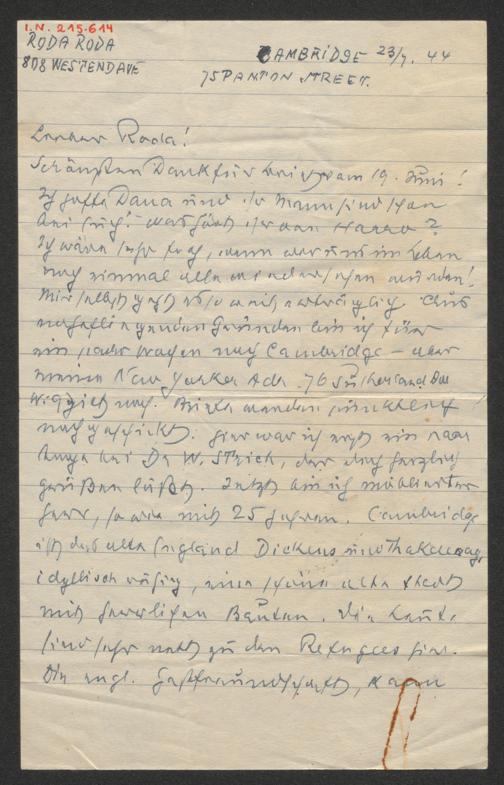 I.N. 215.614
RODA RODA
808 WESTENDAVE
CAMBRIDGE 23/7. 44
75 PANTON STREET.
Lieber Roda!
Schönsten Dank für vom 19. Juni!
Ich hoffe Dana und ihr Mann sind schon
bei Euch! Was hört ihr von
Ich wäre sehr froh, wenn wir uns im Leben
noch einmal alle wiedersehen würden!
Mir selbst geht es so weit erträglich. Aus
naheliegenden Gründen bin ich für
ein paar Wochen nach Cambridge – aber
meine New Yorker Adr. 76
noch. Briefe werden pünktlich
nachgeschickt. Hier war ich erst ein paar
Tage bei Dr W. Strich, der Dich herzlich
grüßen läßt. Jetzt bin ich möblierter
Herr, so wie mit 25 Jahren. Cambridge
ist das alte England Dickens und Thakeray,
idyllisch ruhig, eine schöne alte Stadt
mit herrlichen Bauten. Die Leute
sind sehr nett zu den Refugees hier.
Die engl. Gastfreundschaft, kann